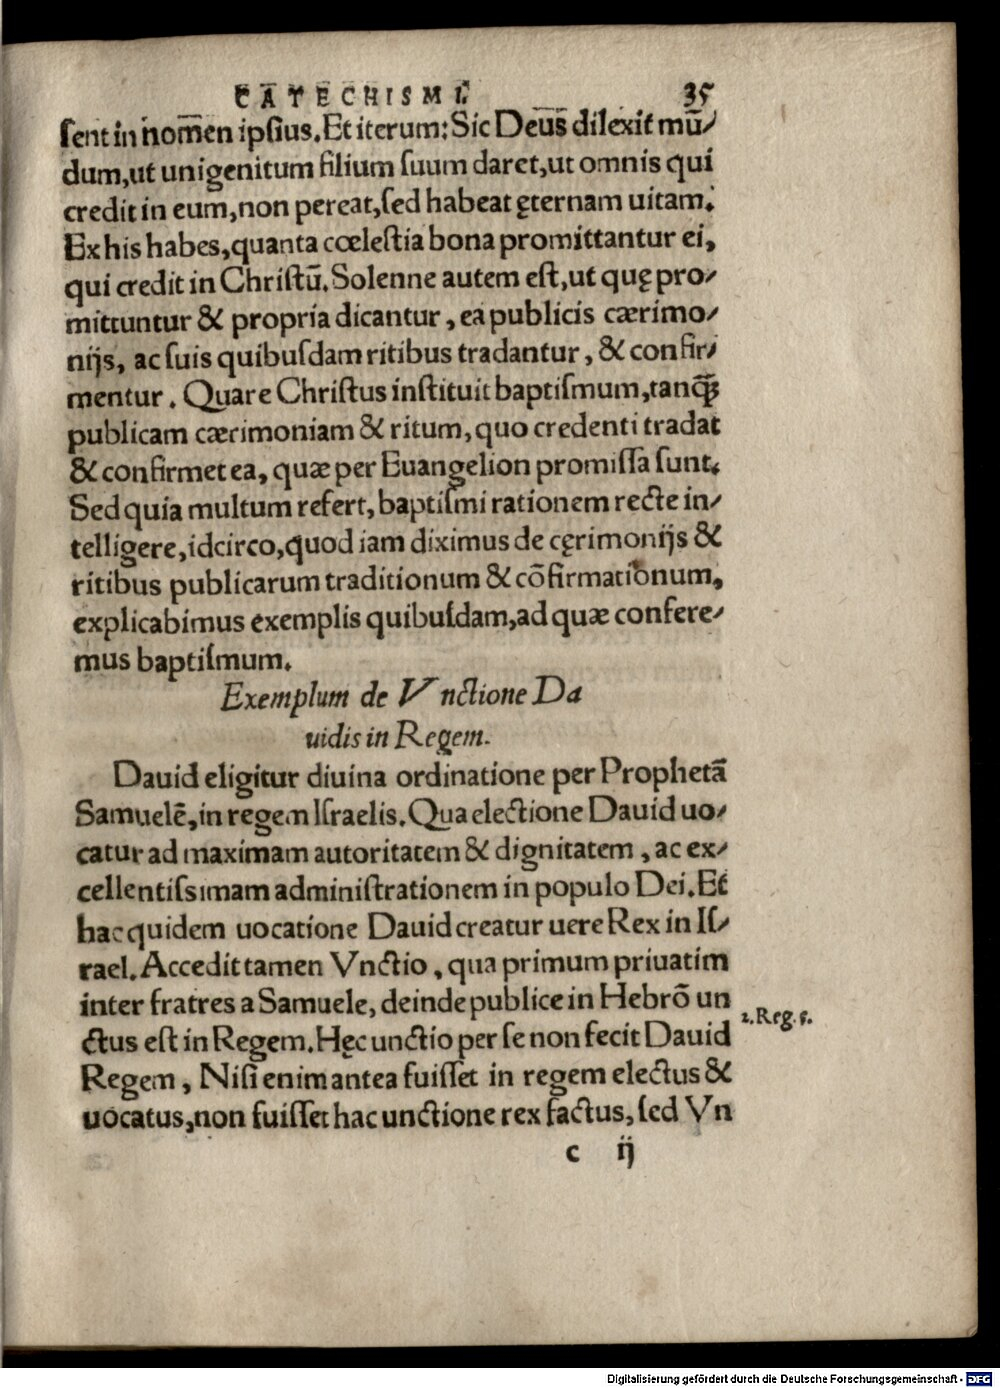 CATECHISMI. 35
ſent in nomen ipſius. Et iterum: Sic Deus dilexit mū⸗
dum, ut unigenitum filium ſuum daret, ut omnis qui
credit in eum, non pereat, ſed habeat ęternam uitam.
Ex his habes, quanta cœleſtia bona promittantur ei,
qui credit in Chriſtū. Solenne autem eſt, ut quę pro⸗
mittuntur & propria dicantur, ea publicis cærimo⸗
nijs, ac ſuis quibuſdam ritibus tradantur, & confir⸗
mentur. Quare Chriſtus inſtituit baptiſmum, tanꝗ̃
publicam cærimoniam & ritum, quo credenti tradat
& confirmet ea, quæ per Euangelion promiſſa ſunt.
Sed quia multum refert, baptiſmi rationem recte in⸗
telligere, idcirco, quod iam diximus de cęrimonijs &
ritibus publicarum traditionum & cōfirmationum,
explicabimus exemplis quibuſdam, ad quæ confere⸗
mus baptiſmum.
Exemplum de Vnctione Da
uidis in Regem.
Dauid eligitur diuina ordinatione per Prophetā
Samuelē, in regem Iſraelis. Qua electione Dauid uo⸗
catur ad maximam autoritatem & dignitatem, ac ex⸗
cellentiſsimam adminiſtrationem in populo Dei. Et
hac quidem uocatione Dauid creatur uere Rex in Iſ⸗
rael. Accedit tamen Vnctio, qua primum priuatim
inter fratres a Samuele, deinde publice in Hebrō un
ctus eſt in Regem. Hęc unctio per ſe non fecit Dauid
2. Reg. 5.
Regem, Niſi enim antea fuiſſet in regem electus &
uocatus, non fuiſſet hac unctione rex factus, ſed Vn
c ij
Digitalisierung gefördert durch die Deutsche Forschungsgemeinschaft - DFG